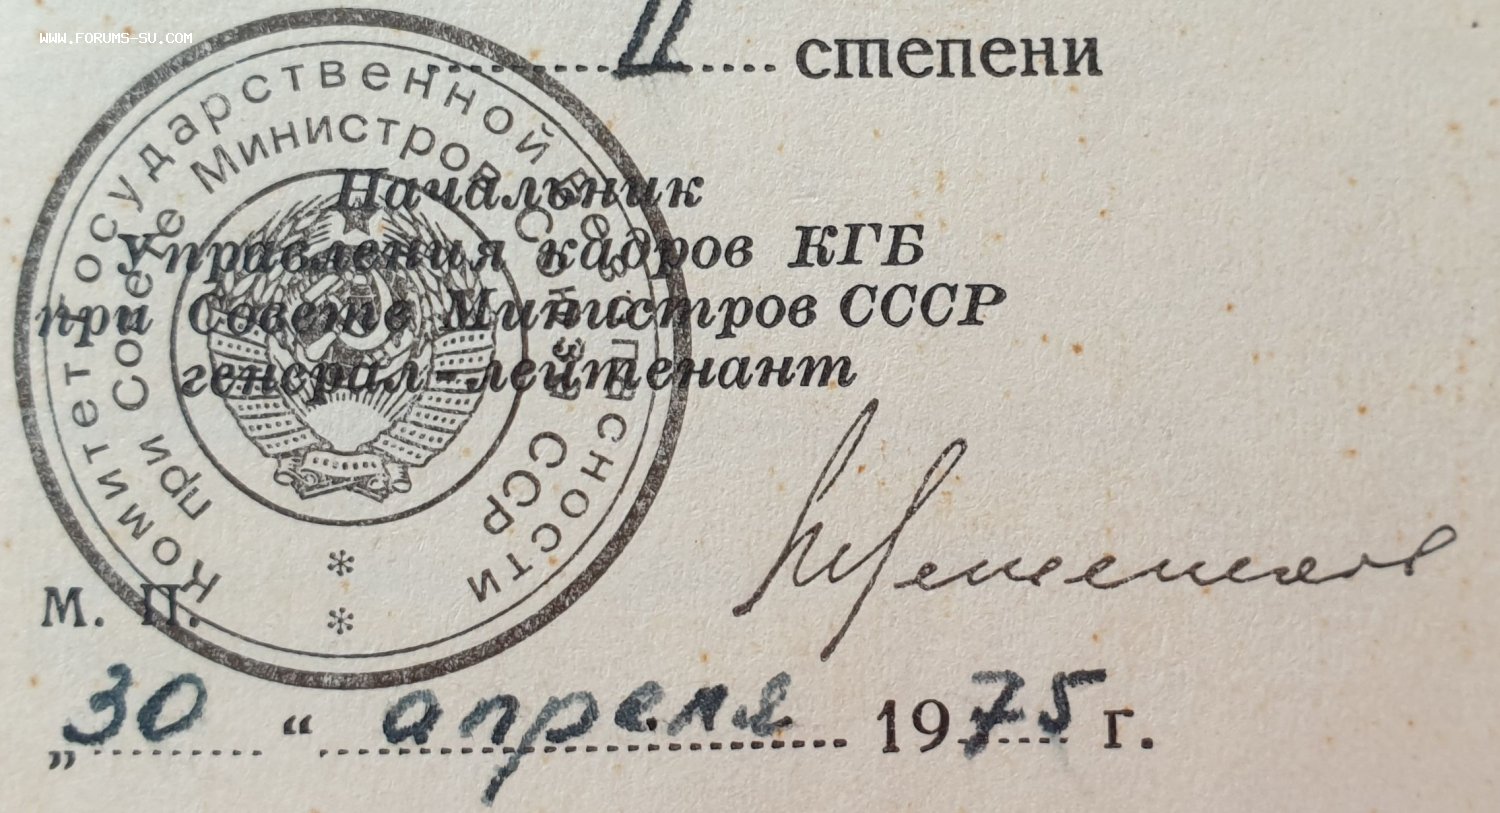 WWW.FORUMS-SU.COM
II степени
Комитет Государственной Безопасности
при Совете Министров Союза ССР
Начальник
Управления кадров КГБ
при Совете Министров СССР
генерал-лейтенант
М. П.
„30“ апреля 1975 г.